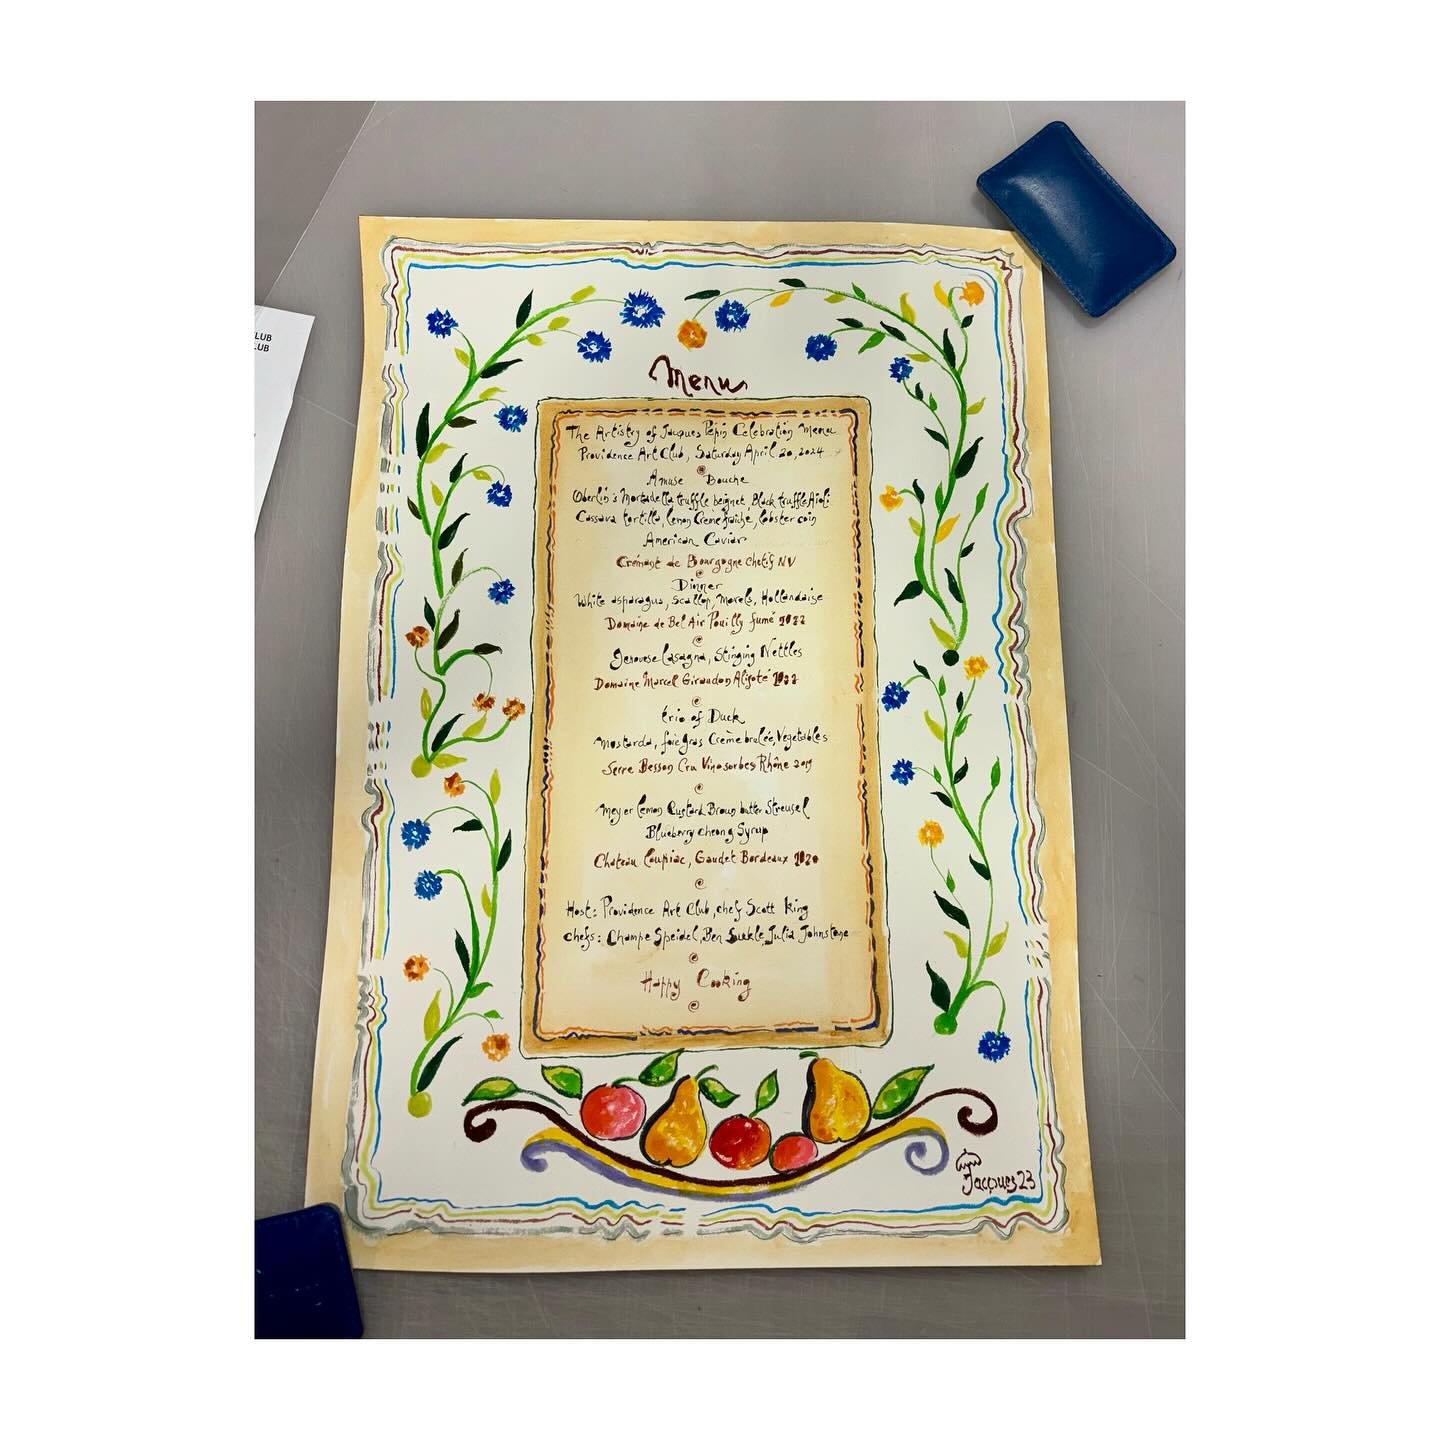 CLUB
CLUB
Menu
The Artistry of Jacques Pépin Celebration Menu
Providence Art Club, Saturday April 20, 2024
Amuse Bouche
Oberlin's Mortadella truffle beignet Black truffle Aioli
Cassava tortilla, lemon Crème fraîché, lobster coin
American Caviar
Crémant de Bourgogne Chetif NV
Dinner
White asparagus, Scallop, Morels, Hollandaise
Domaine de Bel Air Pouilly fumé 2022
Genovese Lasagna, Stinging Nettles
Domaine Marcel Giraudon Aligoté 2022
trio of Duck
Mostarda, foie gras Crème brulée, Vegetables
Serre Besson Cru Vinsobres Rhône 2019
Meyer lemon Custard Brown butter Streusel
Blueberry Syrup
Chateau Loupiac, Gaudet Bordeaux 2020
Host: Providence Art Club, chef Scott King
chefs: Champe Speidel, Ben Julia Johnstone
Happy Cooking
Jacques 23